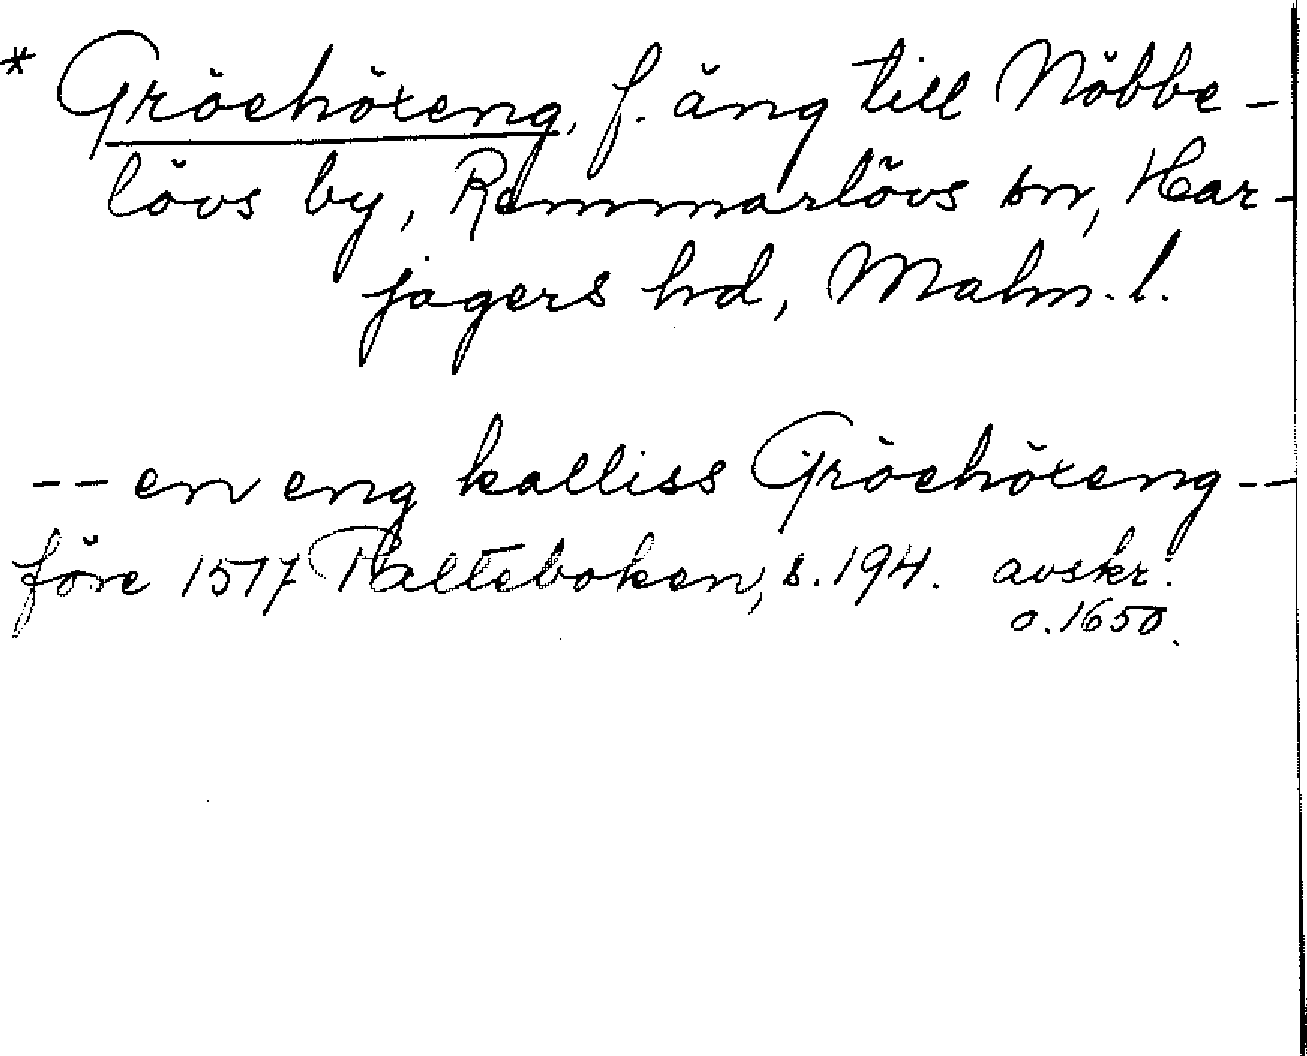 * Gröehöxeng, f. äng till Nöbbe-
lövs by, Remmarlövs sn, Har-
jagers hd, Malm. l.
-- en eng kalliss Gröehöxeng --
före 1517 Palteboken, s. 194. avskr.
o. 1650.